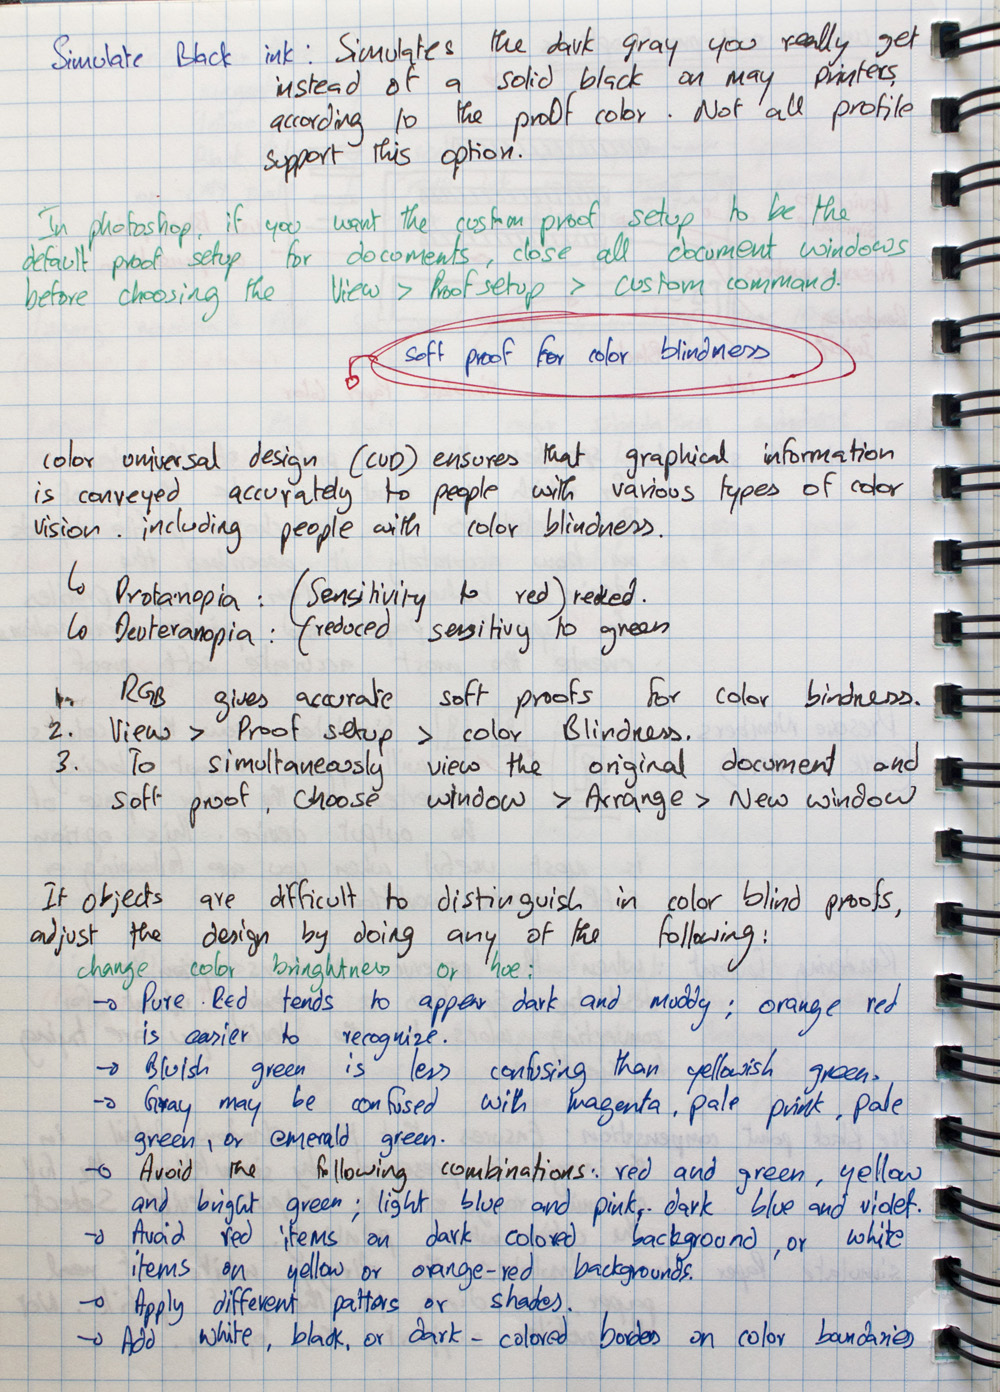 Simulate Black ink: Simulates the dark gray you really get
instead of a solid black on may printers,
according to the proof color. Not all profile
support this option.
In photoshop, if you want the custom proof setup to be the
default proof setup for documents, close all document windows
before choosing the View > Proof setup > custom command.
soft proof for color blindness
color universal design (CUD) ensures that graphical information
is conveyed accurately to people with various types of color
vision. including people with color blindness.
↳ Protanopia: (Sensitivity to red)
↳ Deuteranopia: (reduced sensitivy to green
1. RGB gives accurate soft proofs for color bindness.
2. View > Proof setup > color Blindness.
3. To simultaneously view the original document and
soft proof, choose window > Arrange > New window
If objects are difficult to distinguish in color blind proofs,
adjust the design by doing any of the following:
change color bringhtness or hue:
→ Pure Red tends to appear dark and muddy; orange red
is easier to recognize.
→ Bluish green is less confusing than yellowish green.
→ Gray may be confused with magenta, pale pink, pale
green, or emerald green.
→ Avoid the following combinations: red and green, yellow
and bright green; light blue and pink, dark blue and violet.
→ Avoid red items on dark colored background, or white
items on yellow or orange-red backgrounds.
→ Apply different patters or shades.
→ Add white, black, or dark-colored borders on color boundaries